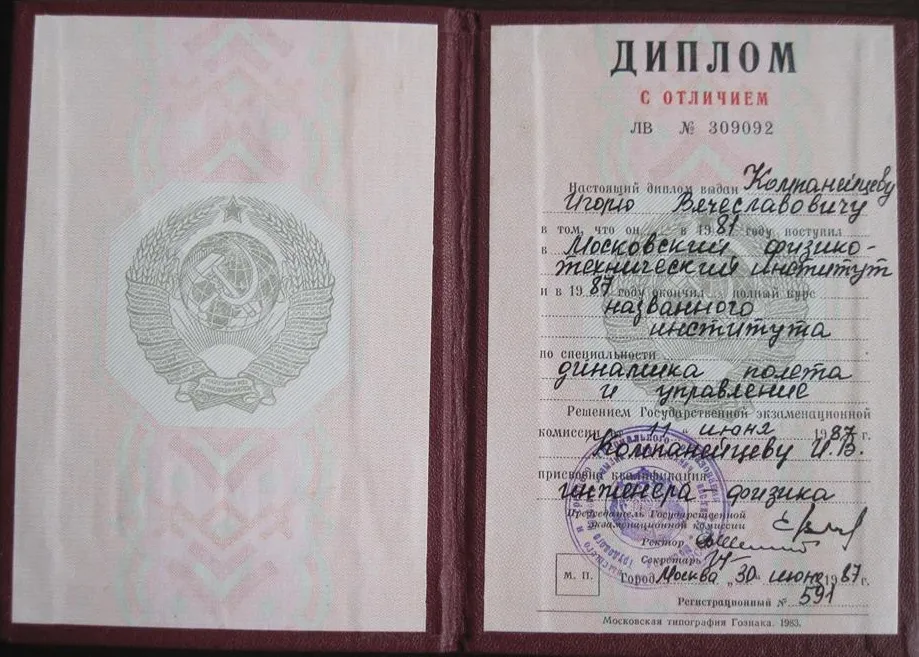 ДИПЛОМ
С ОТЛИЧИЕМ
ЛВ № 309092
Настоящий диплом выдан Компанейцеву
Игорю Вячеславовичу
в том, что он в 1981 году поступил
в Московский физико-
технический институт
и в 1987 году окончил полный курс
названного
института
по специальности
динамика полета
и управление
Решением Государственной экзаменационной
комиссии от 11 июня 1987 г.
Компанейцеву И.В.
присвоена квалификация
инженера физика
Председатель Государственной
экзаменационной комиссии
Ректор
Секретарь
М. П.
Город Москва „30" июня 1987 г.
Регистрационный № 591
Московская типография Гознака. 1983.